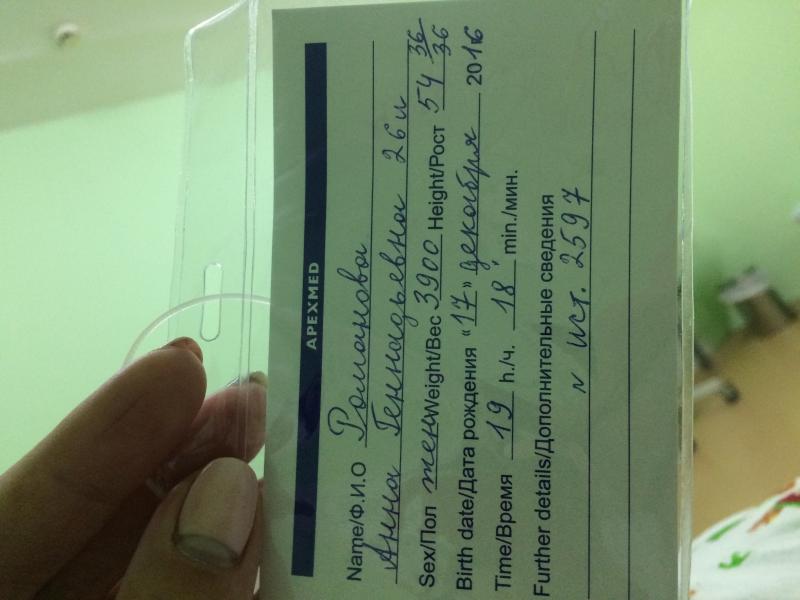 APEXMED
Name/Ф.И.О Романова
Анна Геннадьевна 26 л
Sex/Пол жен Weight/Вес 3900 Height/Рост 54 36/36
Birth date/Дата рождения "17" декабря 2016
Time/Время 19 h./ч. 18 min./мин.
Further details/Дополнительные сведения
N ист. 2597